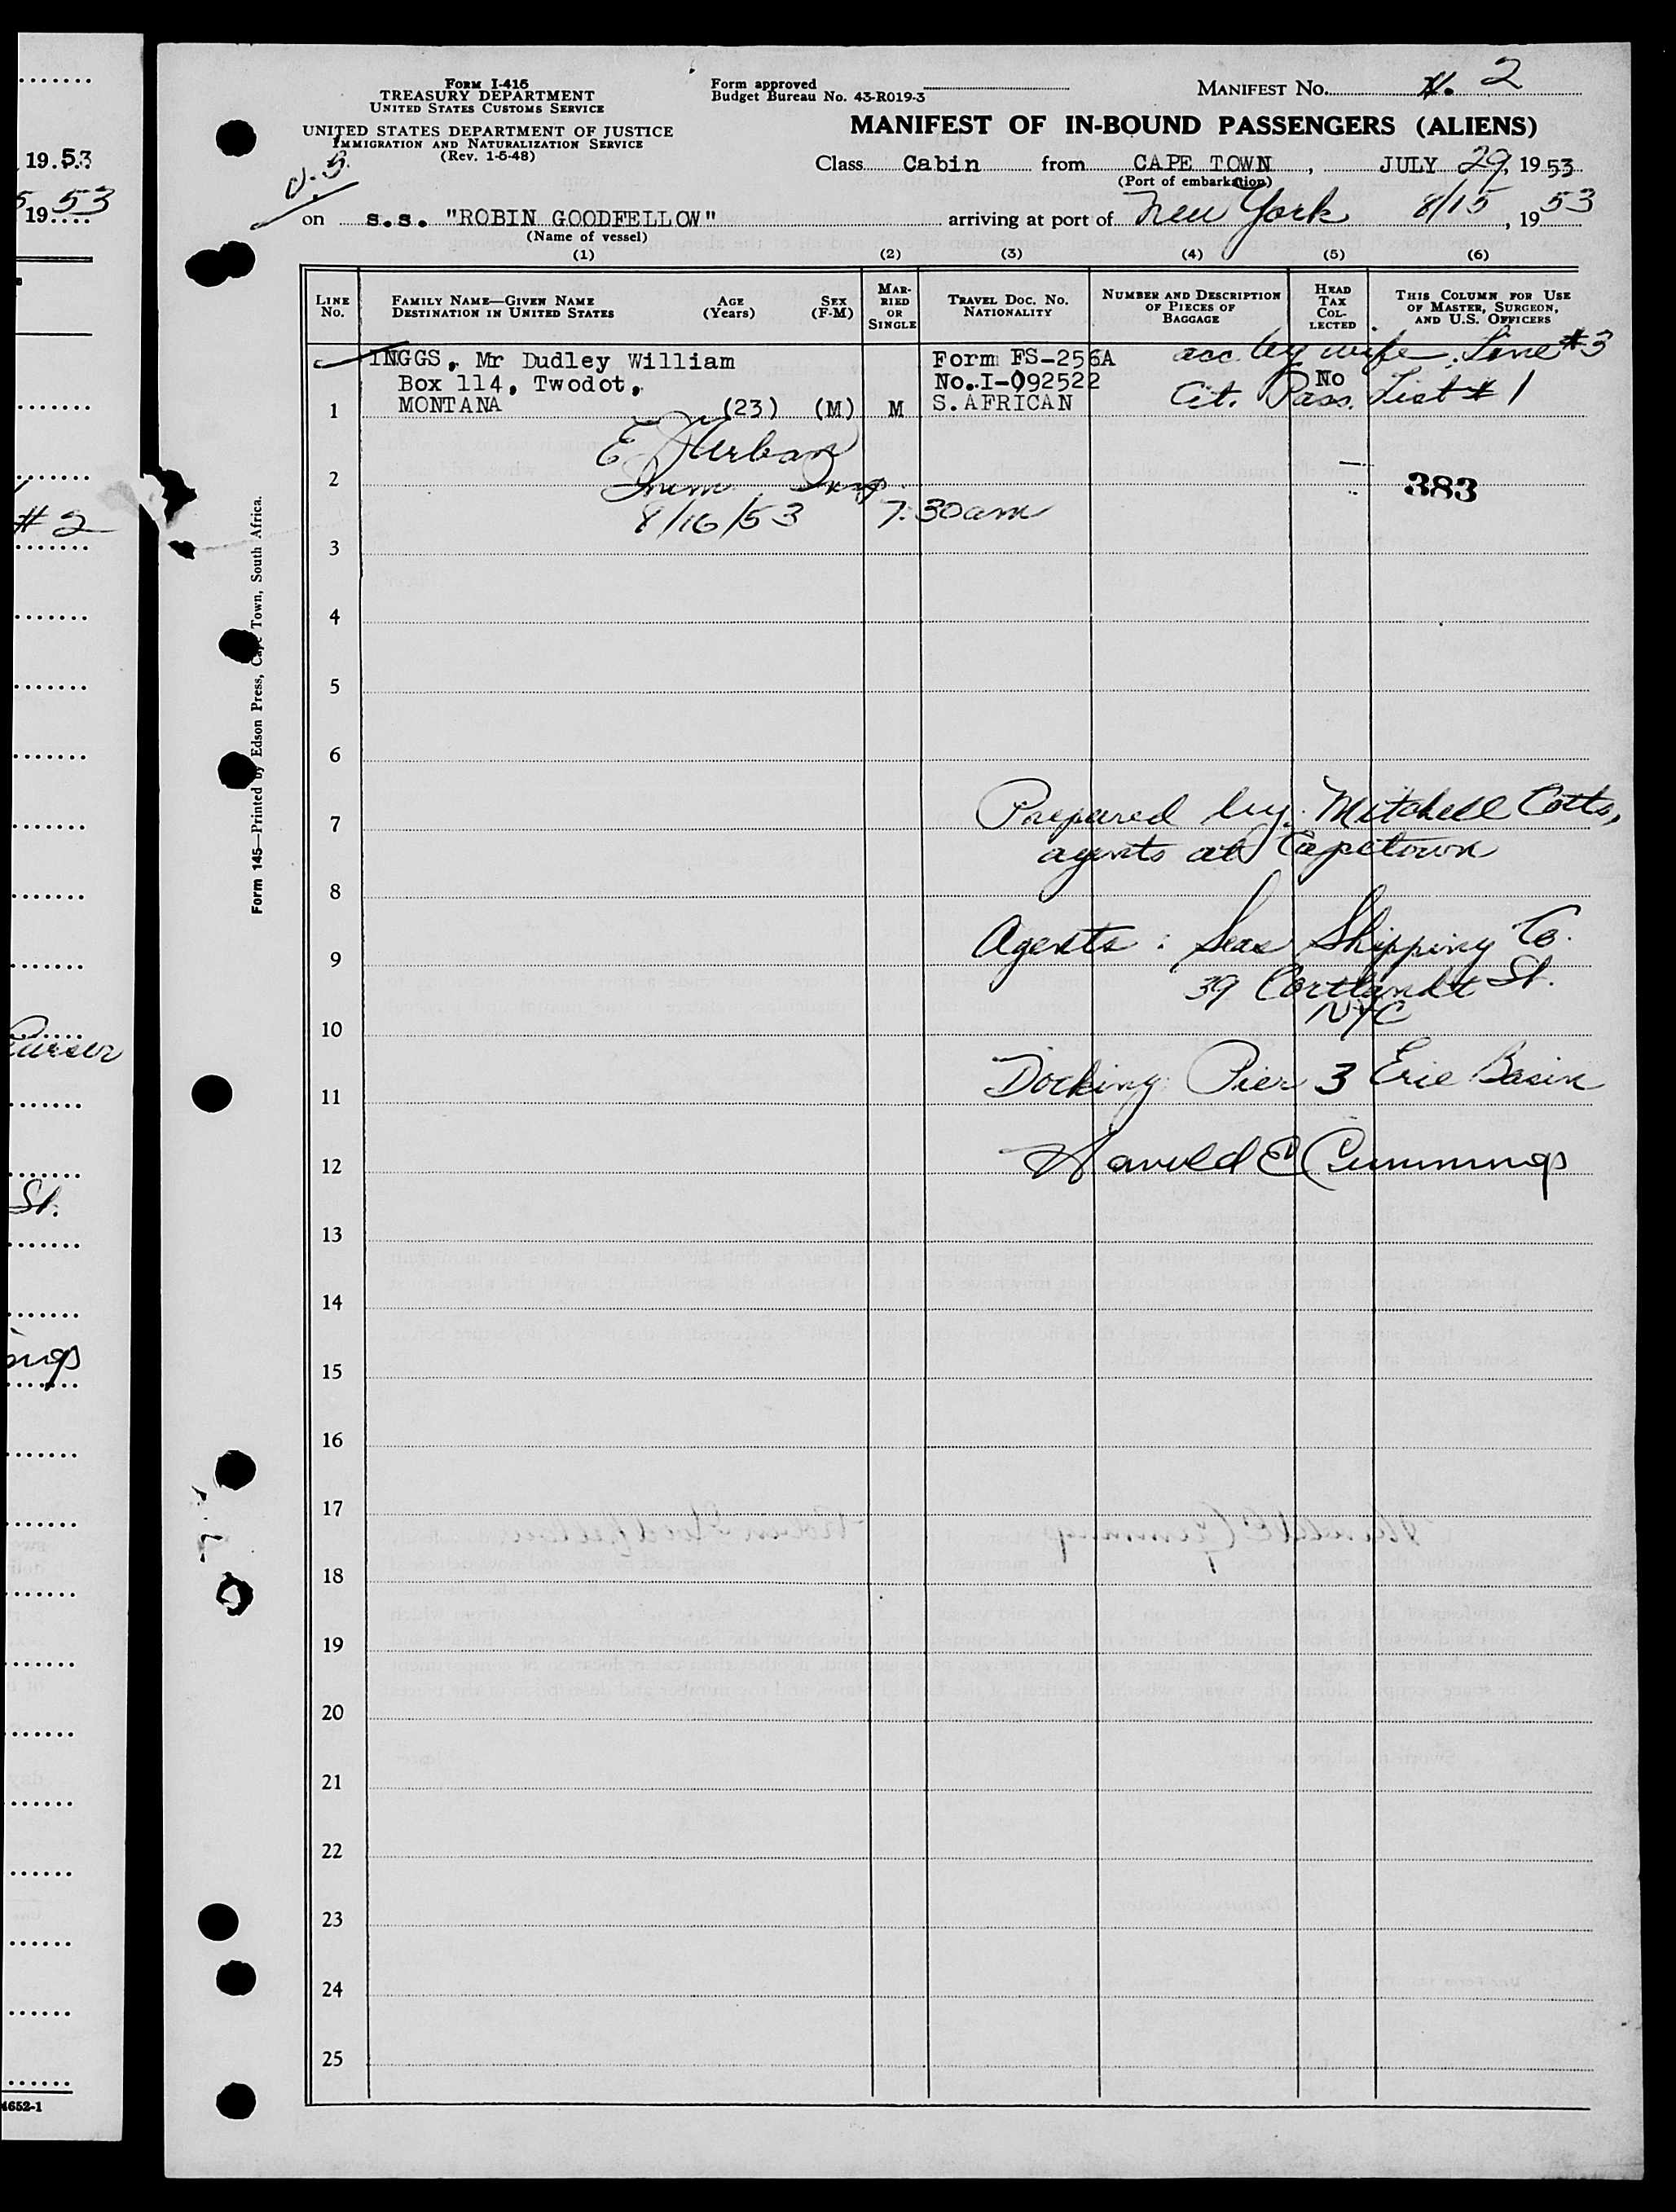 19.53
5 19 53
# 2
Purser
St.
ings
4652-1
Form I-415
TREASURY DEPARTMENT
UNITED STATES CUSTOMS SERVICE
UNITED STATES DEPARTMENT OF JUSTICE
IMMIGRATION AND NATURALIZATION SERVICE
(Rev. 1-5-48)
Form approved
Budget Bureau No. 43-R019-3
MANIFEST NO. 2
MANIFEST OF IN-BOUND PASSENGERS (ALIENS)
Class Cabin from CAPE TOWN, JULY 29, 19 53
(Port of embarkation)
on s.s. "ROBIN GOODFELLOW" arriving at port of New York 8/15, 19 53
(Name of vessel)
(1) (2) (3) (4) (5) (6)
LINE NO.
FAMILY NAME—GIVEN NAME
DESTINATION IN UNITED STATES
AGE (Years)
SEX (F-M)
MARRIED OR SINGLE
TRAVEL DOC. NO.
NATIONALITY
NUMBER AND DESCRIPTION OF PIECES OF BAGGAGE
HEAD TAX COLLECTED
THIS COLUMN FOR USE OF MASTER, SURGEON, AND U.S. OFFICERS
INGGS, Mr Dudley William Form FS-256A acc. by wife, Line #3
Box 114, Twodot, No.I-092522 No
1 MONTANA (23) (M) M S.AFRICAN Cit. Pass. List # 1
E Urban
2 Imm. Insp. 383
8/16/53 7:30am
3
4
5
6
7 Prepared by: Mitchell Cotts,
agents at Capetown
8
9 Agents: Seas Shipping Co.
39 Cortlandt St.
NYC
10
11 Docking: Pier 3 Erie Basin
12 Harold E Cummings
13
14
15
16
17
18
19
20
21
22
23
24
25
Form 145—Printed by Edson Press, Cape Town, South Africa.